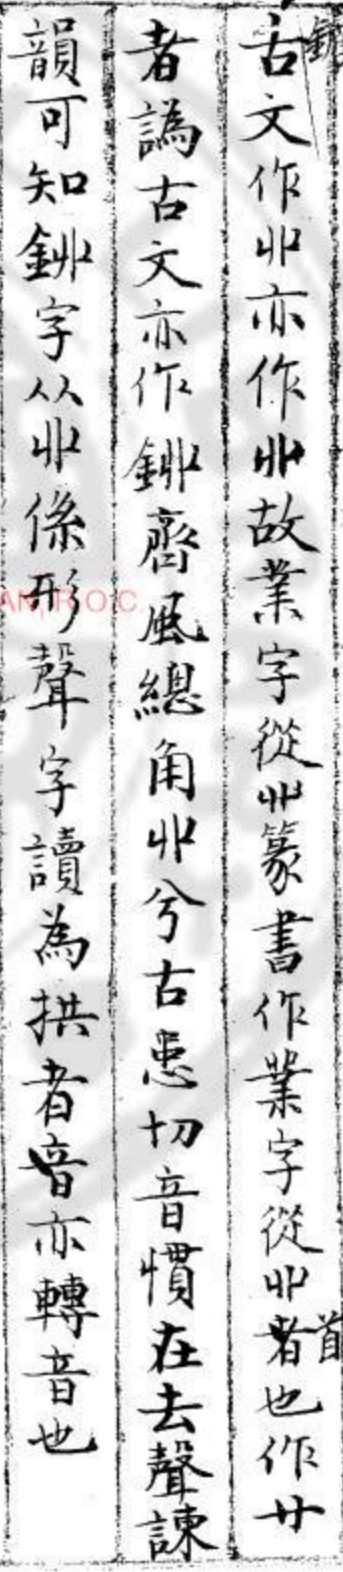 古文作丱亦作卝故業字從丱篆書作業字從丱者也作廾
者譌古文亦作鉚齊風總角丱兮古患切音慣在去聲諫
韻可知鉚字从丱係形聲字讀為拱者音亦轉音也
首